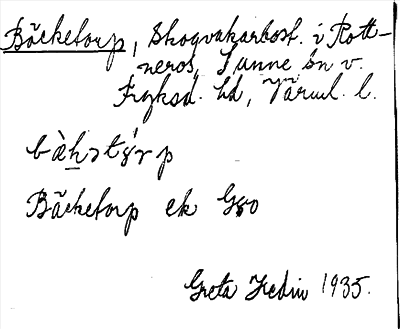 Bäcketorp, Skogvakarbost. i Rott-
neros, Sunne sn v.
Fryksd. hd, Värml. l.
bàh̲ətɤ́rp
Bäcketorp ek G80
Greta Hedin 1935.